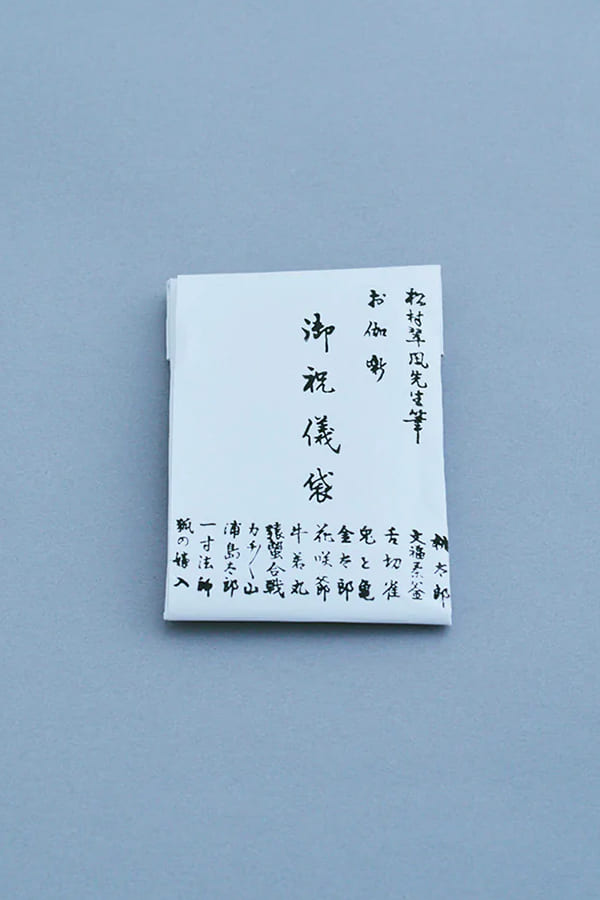 松村翠凰先生筆
お伽噺
御祝儀袋
桃太郎
文福茶釜
舌切雀
兎と亀
金太郎
花咲爺
牛若丸
猿蟹合戦
カチ〳〵山
浦島太郎
一寸法師
狐の嫁入